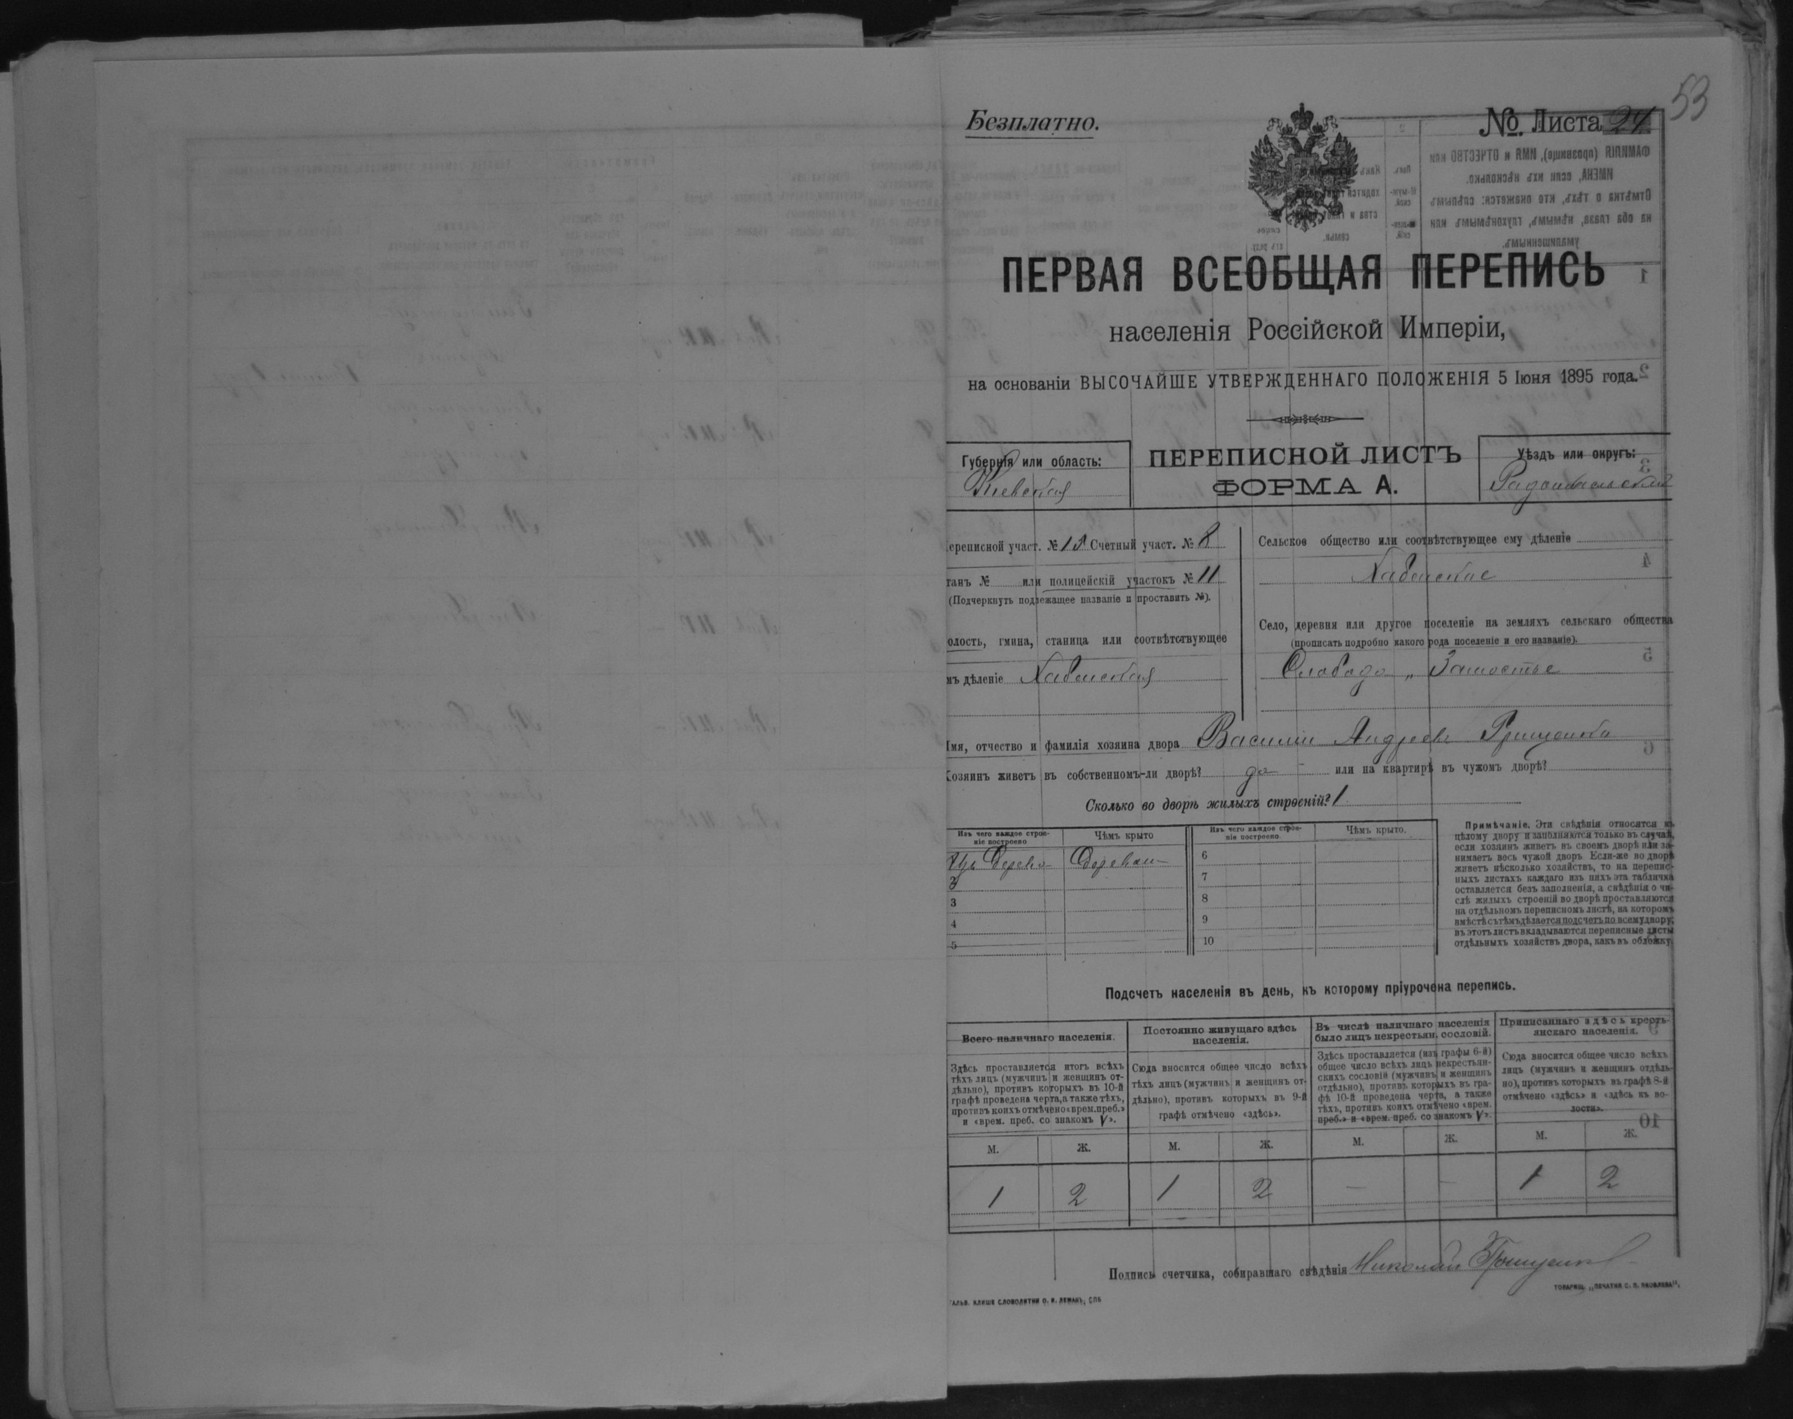 53
Безплатно.
№ Листа 24
ПЕРВАЯ ВСЕОБЩАЯ ПЕРЕПИСЬ
населенія Россійской Имперіи,
на основаніи ВЫСОЧАЙШЕ УТВЕРЖДЕННАГО ПОЛОЖЕНІЯ 5 Іюня 1895 года.
Губернія или область:
Кіевская
ПЕРЕПИСНОЙ ЛИСТЪ
ФОРМА А.
Уѣздъ или округъ:
Радомысльскій
ереписной участ. № 18 Счетный участ. № 8
танъ № или полицейскій участокъ № 11
(Подчеркнуть подлежащее названіе и проставить №).
олость, гмина, станица или соотвѣтствующее
ъ дѣленіе Хабенская
Сельское общество или соотвѣтствующее ему дѣленіе
Хабенское
Село, деревня или другое поселеніе на земляхъ сельскаго общества
(прописать подробно какого рода поселеніе и его названіе).
Слобода „ Замостье
Имя, отчество и фамилія хозяина двора Василій Андреев
Хозяинъ живетъ въ собственномъ-ли дворѣ? да или на квартирѣ въ чужомъ дворѣ?
Сколько во дворѣ жилыхъ строеній? 1
Изъ чего каждое строе-
ніе построено
Чѣмъ крыто
Изъ чего каждое строе-
ніе построено.
Чѣмъ крыто.
Изъ Дерева
2
3
4
5
6
7
8
9
10
Примѣчаніе. Эти свѣдѣнія относятся къ
цѣлому двору и заполняются только въ случаѣ,
если хозяинъ живетъ въ своемъ дворѣ или за-
нимаетъ весь чужой дворъ. Если-же во дворѣ
живетъ нѣсколько хозяйствъ, то на перепис-
ныхъ листахъ каждаго изъ нихъ эта табличка
оставляется безъ заполненія, а свѣдѣнія о чи-
слѣ жилыхъ строеній во дворѣ проставляются
на отдѣльномъ переписномъ листѣ, на которомъ
вмѣстѣ съ тѣмъ дѣлается подсчетъ по всему двору;
въ этотъ листъ вкладываются переписные листы
отдѣльныхъ хозяйствъ двора, какъ въ обложку.
Подсчетъ населенія въ день, къ которому пріурочена перепись.
Всего наличнаго населенія.
Здѣсь проставляется итогъ всѣхъ
тѣхъ лицъ (мужчинъ и женщинъ от-
дѣльно), противъ которыхъ въ 10-й
графѣ проведена черта, а также тѣхъ,
противъ коихъ отмѣчено «врем. преб.»
и «врем. преб. со знакомъ V».
Постоянно живущаго здѣсь
населенія.
Сюда вносится общее число всѣхъ
тѣхъ лицъ (мужчинъ и женщинъ от-
дѣльно), противъ которыхъ въ 9-й
графѣ отмѣчено «здѣсь».
Въ числѣ наличнаго населенія
было лицъ некрестьян. сословій.
Здѣсь проставляется (изъ графы 6-й)
общее число всѣхъ лицъ некрестьян-
скихъ сословій (мужчинъ и женщинъ
отдѣльно), противъ которыхъ въ гра-
фѣ 10-й проведена черта, а также
тѣхъ, противъ коихъ отмѣчено «врем.
преб.» и «врем. преб. со знакомъ V».
Приписаннаго здѣсь кресть-
янскаго населенія.
Сюда вносится общее число всѣхъ
лицъ (мужчинъ и женщинъ отдѣль-
но), противъ которыхъ въ графѣ 8-й
отмѣчено «здѣсь» и «здѣсь къ во-
лости».
М. Ж. М. Ж. М. Ж. М. Ж.
1 2 1 2 — — 1 2
Подпись счетчика, собиравшаго свѣдѣнія Николай
ГАЛЬВ. КЛИШЕ СЛОВОЛИТНИ О. И. ЛЕМАНЪ, СПБ
ТОВАРИЩ. „ПЕЧАТНЯ С. П. ЯКОВЛЕВА“.